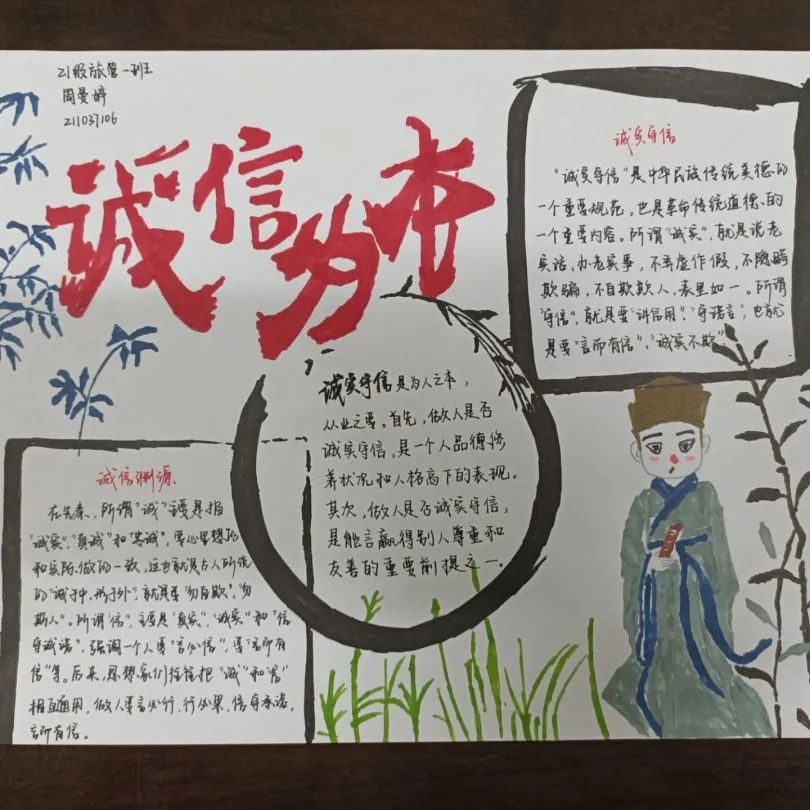 21级旅管一班
周曼婷
211037106
诚信为本
诚实守信
"诚实守信"是中华民族传统美德的
一个重要规范，也是革命传统道德的
一个重要内容。所谓"诚实"，就是说老
实话、办老实事，不弄虚作假，不隐瞒
欺骗，不自欺欺人，表里如一。所谓
"守信"，就是要"讲信用"、"守诺言"，也就
是要"言而有信"、"诚实不欺"
诚实守信是为人之本，
从业之要。首先，做人是否
诚实守信，是一个人品德修
养状况和人格高下的表现。
其次，做人是否诚实守信，
是能否赢得别人尊重和
友善的重要前提之一。
诚信渊源
在先秦，所谓"诚"主要是指
"诚实"、"真诚"和"忠诚"，要心里想的
和实际做的一致，这也就是古人所说
的"诚于中，形于外"，就是要"勿自欺"，"勿
欺人"。所谓"信"，主要是"真实"、"诚实"和"信
守诺"，强调一个人要"言必信"，要"言而有
信"等。后来，思想家们往往把"诚"和"信"
相互通用，做人要言必行，行必果，信守承诺，
言而有信。